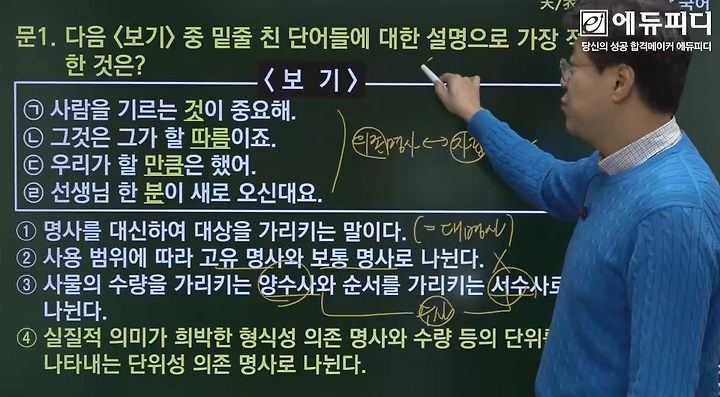 국어
ej 에듀피디
당신의 성공 합격메이커 에듀피디
문1. 다음 <보기> 중 밑줄 친 단어들에 대한 설명으로 가장
한 것은?
< 보 기 >
㉠ 사람을 기르는 것이 중요해.
㉡ 그것은 그가 할 따름이죠.
㉢ 우리가 할 만큼은 했어.
㉣ 선생님 한 분이 새로 오신대요.
의존명사 ↔
① 명사를 대신하여 대상을 가리키는 말이다. (= 대명사)
② 사용 범위에 따라 고유 명사와 보통 명사로 나뉜다.
③ 사물의 수량을 가리키는 양수사와 순서를 가리키는 서수사로
나뉜다.
수사
④ 실질적 의미가 희박한 형식성 의존 명사와 수량 등의 단위를
나타내는 단위성 의존 명사로 나뉜다.